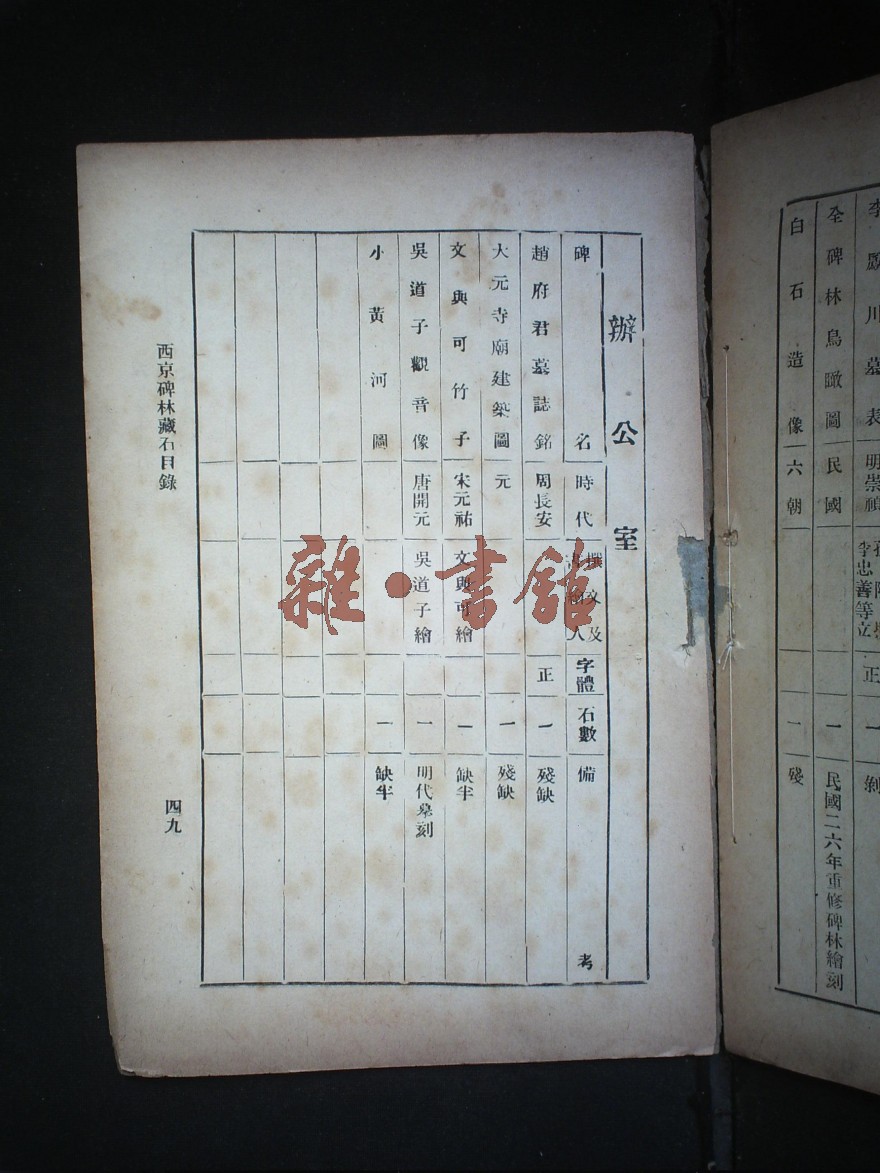 李 川墓表 明崇禎 李忠善等立 正 一 剝
全碑林鳥瞰圖 民國 一 民國二六年重修碑林繪刻
白石造像 六朝 一 殘
辦公室
碑名 時代 撰文及 人 字體 石數 備考
趙府君墓誌銘 周長安 正 一 殘缺
大元寺廟建築圖 元 一 殘缺
文與可竹子 宋元祐 文與可繪 一 缺半
吳道子觀音像 唐開元 吳道子繪 一 明代摹刻
小黃河圖 一 缺半
西京碑林藏石目錄
四九
雜·書館